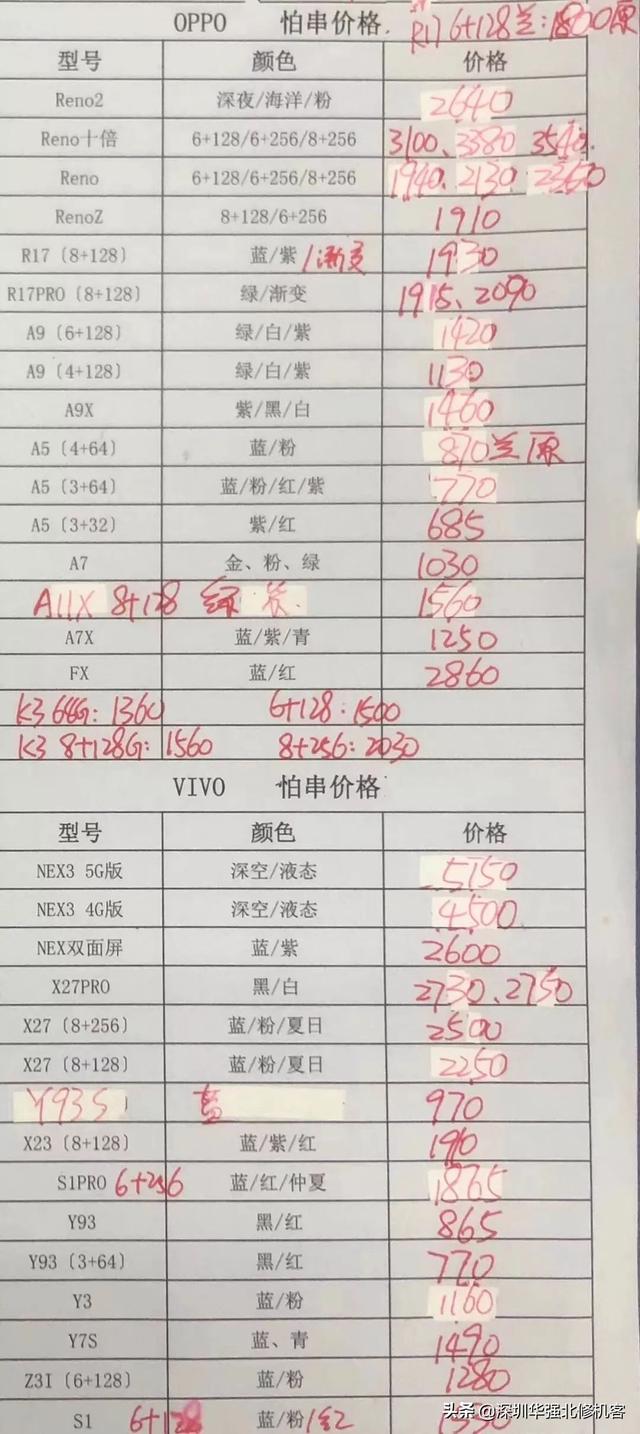 OPPO 怕串价格. R17 6+128兰:1800原
型号 颜色 价格
Reno2 深夜/海洋/粉 2640
Reno十倍 6+128/6+256/8+256 3100、3380 3540.
Reno 6+128/6+256/8+256 1940. 2130 2360
RenoZ 8+128/6+256 1910
R17〔8+128〕 蓝/紫/渐变 1930
R17PRO〔8+128〕 绿/渐变 1915、2090
A9〔6+128〕 绿/白/紫 1420
A9〔4+128〕 绿/白/紫 1130
A9X 紫/黑/白 1460
A5〔4+64〕 蓝/粉 870兰原
A5〔3+64〕 蓝/粉/红/紫 770
A5〔3+32〕 紫/红 685
A7 金、粉、绿 1030
A11X 8+128 1560
A7X 蓝/紫/青 1250
FX 蓝/红 2860
K3 6G: 1360 6+128:1500
K3 8+128G: 1560 8+256:2030
VIVO 怕串价格
型号 颜色 价格
NEX3 5G版 深空/液态 5150
NEX3 4G版 深空/液态 4500
NEX双面屏 蓝/紫 2600
X27PRO 黑/白 2730、2750
X27〔8+256〕 蓝/粉/夏日 2500
X27〔8+128〕 蓝/粉/夏日 2250
Y93S 蓝 970
X23〔8+128〕 蓝/紫/红
S1PRO 6+256 蓝/红/仲夏 1865
Y93 黑/红 865
Y93〔3+64〕 黑/红 770
Y3 蓝/粉 1160
Y7S 蓝、青 1490
Z3I〔6+128〕 蓝/粉 1280
S1 6+128 蓝/粉/红
头条 @深圳华强北修机客